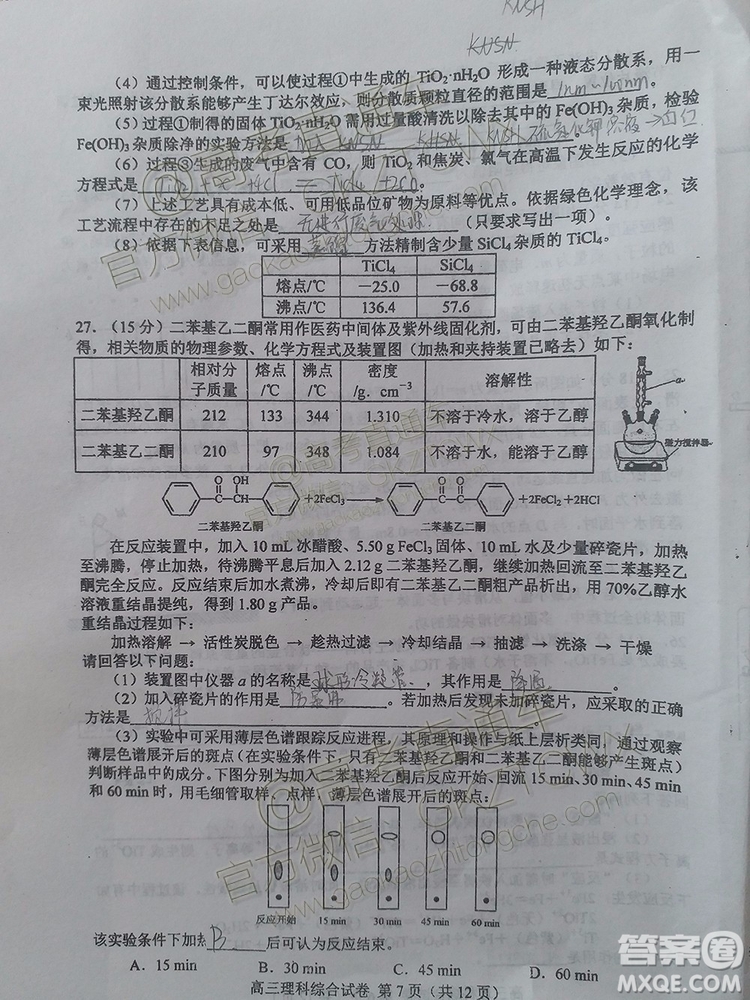 KNSH
KNSN
（4）通过控制条件，可以使过程①中生成的 TiO₂·nH₂O 形成一种液态分散系，用一
束光照射该分散系能够产生丁达尔效应，则分散质颗粒直径的范围是 1nm～100nm 。
（5）过程①制得的固体 TiO₂·nH₂O 需用过量酸清洗以除去其中的 Fe(OH)₃ 杂质，检验
Fe(OH)₃ 杂质除净的实验方法是
（6）过程③生成的废气中含有 CO，则 TiO₂ 和焦炭、氯气在高温下发生反应的化学
方程式是 。
（7）上述工艺具有成本低、可用低品位矿物为原料等优点。依据绿色化学理念，该
工艺流程中存在的不足之处是 （只要求写出一项）。
（8）依据下表信息，可采用 蒸馏 方法精制含少量 SiCl₄ 杂质的 TiCl₄。
TiCl₄ SiCl₄
熔点/℃ −25.0 −68.8
沸点/℃ 136.4 57.6
27．（15 分）二苯基乙二酮常用作医药中间体及紫外线固化剂，可由二苯基羟乙酮氧化制
得，相关物质的物理参数、化学方程式及装置图（加热和夹持装置已略去）如下：
相对分子质量 熔点/℃ 沸点/℃ 密度/g．cm⁻³ 溶解性
二苯基羟乙酮 212 133 344 1.310 不溶于冷水，溶于乙醇
二苯基乙二酮 210 97 348 1.084 不溶于水，能溶于乙醇
a
磁力搅拌器
O OH +2FeCl₃ → O O +2FeCl₂+2HCl
二苯基羟乙酮 二苯基乙二酮
在反应装置中，加入 10 mL 冰醋酸、5.50 g FeCl₃ 固体、10 mL 水及少量碎瓷片，加热
至沸腾，停止加热，待沸腾平息后加入 2.12 g 二苯基羟乙酮，继续加热回流至二苯基羟乙
酮完全反应。反应结束后加水煮沸，冷却后即有二苯基乙二酮粗产品析出，用 70%乙醇水
溶液重结晶提纯，得到 1.80 g 产品。
重结晶过程如下：
加热溶解 → 活性炭脱色 → 趁热过滤 → 冷却结晶 → 抽滤 → 洗涤 → 干燥
请回答以下问题：
（1）装置图中仪器 a 的名称是 球形冷凝管 ，其作用是 。
（2）加入碎瓷片的作用是 防暴沸 。若加热后发现未加碎瓷片，应采取的正确
方法是 搅拌 。
（3）实验中可采用薄层色谱跟踪反应进程，其原理和操作与纸上层析类同，通过观察
薄层色谱展开后的斑点（在实验条件下，只有二苯基羟乙酮和二苯基乙二酮能够产生斑点）
判断样品中的成分。下图分别为加入二苯基羟乙酮后反应开始、回流 15 min、30 min、45 min
和 60 min 时，用毛细管取样、点样，薄层色谱展开后的斑点：
反应开始 15 min 30 min 45 min 60 min
该实验条件下加热 B 后可认为反应结束。
A．15 min B．30 min C．45 min D．60 min
高三理科综合试卷 第 7 页（共 12 页）
@高考直通车
官方微信：GKZTCWX
官方微信：www.gaokaozhitongche.com
答案圈
MXQE.COM